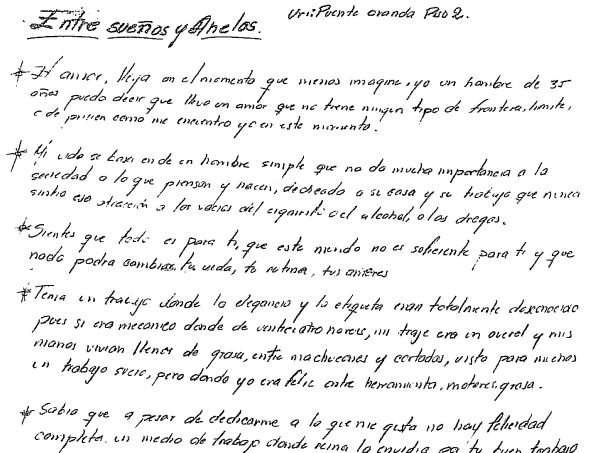 Entre sueños y Anelos.
Uri: Puente aranda Piso 2.
El amor, llega en el momento que menos imagine, yo un hombre de 35
años puedo decir que llevo un amor que no tiene ningun tipo de frontera, limite,
o de prision como me encuentro yo en este momento.
Mi vida se basa en de un hombre simple que no da mucha importancia a la
sociedad o lo que piensan y hacen, dedicado a su casa y su trabajo que nunca
sintio esa atracción a los vicios del cigarrillo o el alcohol, o las drogas.
Sientes que todo es para ti, que este mundo no es suficiente para ti y que
nada podra cambiar, tu vida, tu rutina, tus
Tenia un trabajo donde la elegancia y la etiqueta eran totalmente desconocidas
pues si era mecanico donde de veinticuatro horas, mi traje era un overol y mis
manos vivian llenas de grasa, entre machucones y cortadas, visto para muchos
un trabajo sucio, pero donde yo era feliz entre herramienta, motores, grasa.
Sabia que a pesar de dedicarme a lo que me gusta no hay felicidad
completa. un medio de trabajo donde reina la envidia por tu buen trabajo